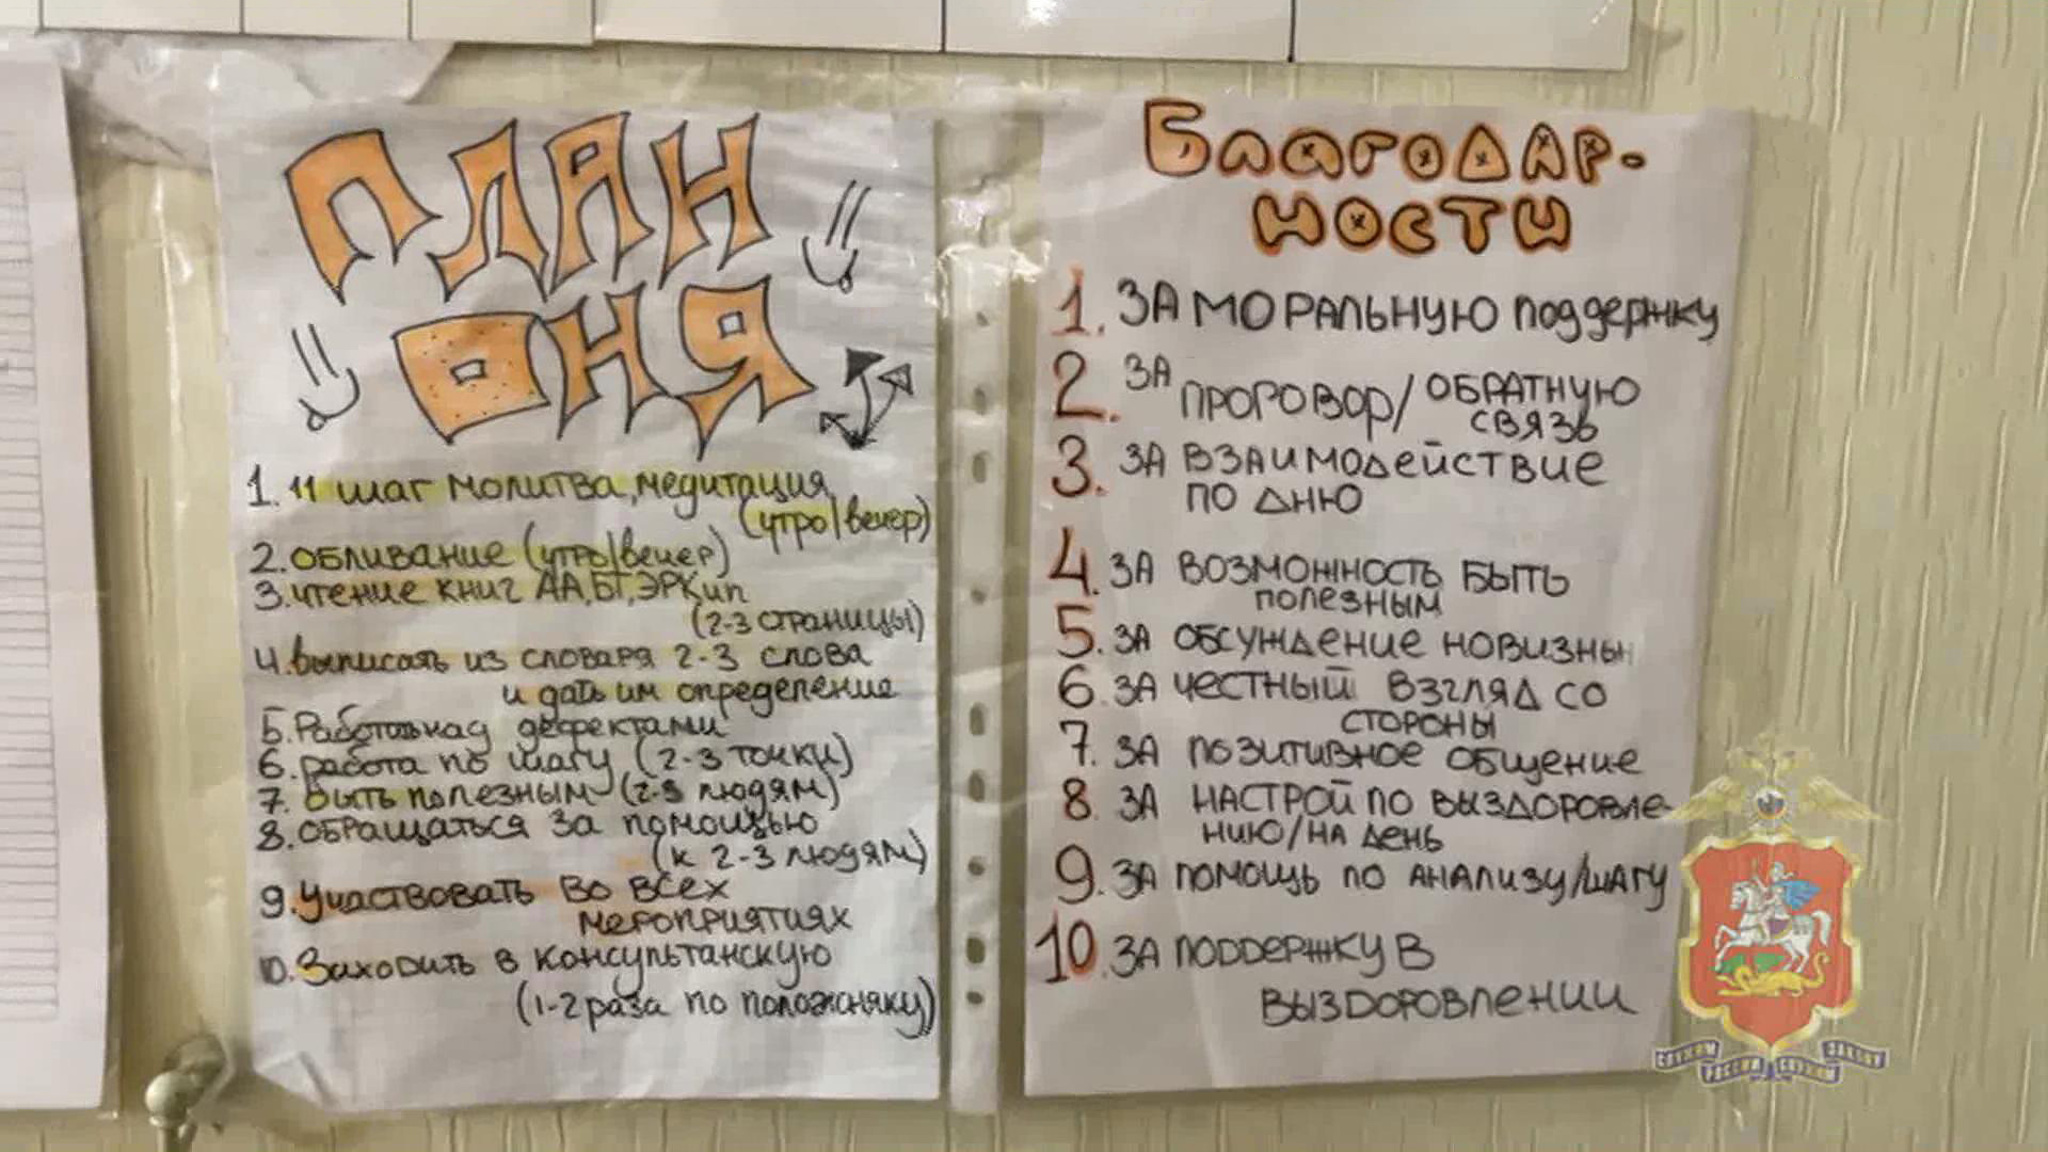 ПЛАН
ДНЯ
1. 11 шаг молитва, медитация
(утро/вечер)
2. обливание (утро/вечер)
3. чтение книг АА, БТ, ЭРК ип
(2-3 страницы)
4. выписать из словаря 2-3 слова
и дать им определение
5. Работа над дефектами
6. работа по шагу (2-3 точки)
7. быть полезным (2-3 людям)
8. обращаться за помощью
(к 2-3 людям)
9. Участвовать во всех
мероприятиях
10. Заходить в консультанскую
(1-2 раза по положняку)
Благодар-
ности
1. ЗА МОРАЛЬНУЮ поддержку
2. ЗА ПРОГОВОР/ ОБРАТНУЮ
СВЯЗЬ
3. ЗА ВЗАИМОДЕЙСТВИЕ
ПО ДНЮ
4. ЗА ВОЗМОЖНОСТЬ БЫТЬ
ПОЛЕЗНЫМ
5. ЗА ОБСУЖДЕНИЕ НОВИЗНЫ
6. ЗА ЧЕСТНЫЙ ВЗГЛЯД СО
СТОРОНЫ
7. ЗА ПОЗИТИВНОЕ ОБЩЕНИЕ
8. ЗА НАСТРОЙ ПО ВЫЗДОРОВЛЕ-
НИЮ/НА ДЕНЬ
9. ЗА ПОМОЩЬ ПО АНАЛИЗУ/ШАГУ
10. ЗА ПОДДЕРЖКУ В
ВЫЗДОРОВЛЕНИИ
СЛУЖИМ РОССИИ СЛУЖИМ ЗАКОНУ